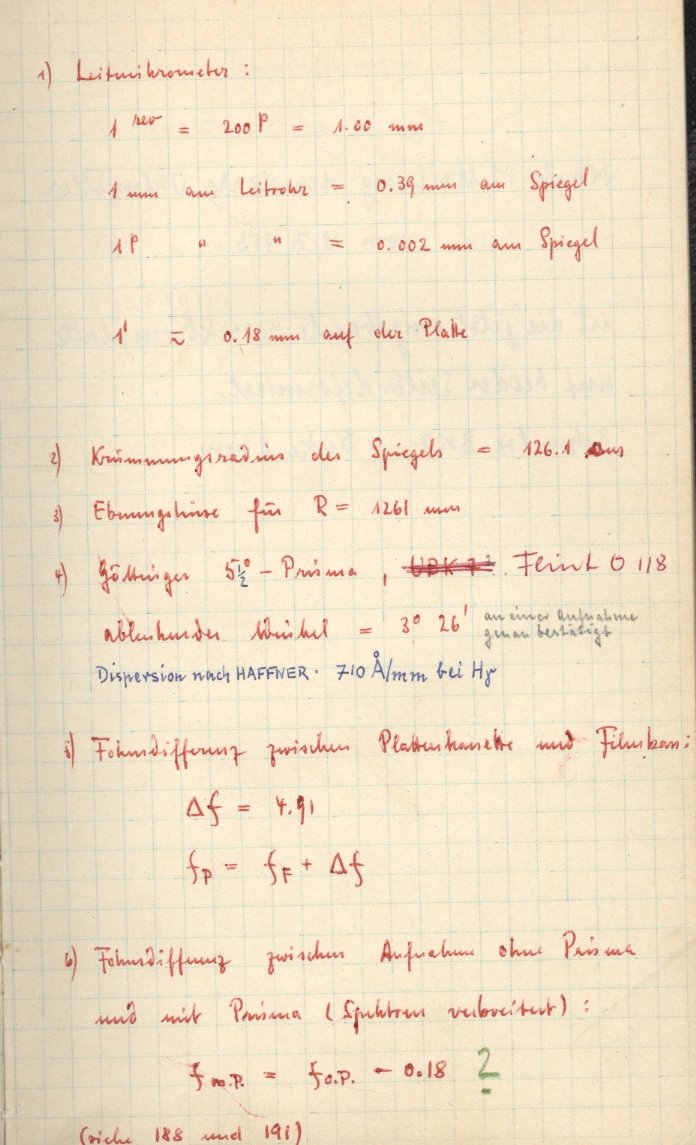 1) Leitmikrometer :
1 rev = 200 p = 1.00 mm
1 mm am Leitrohr = 0.39 mm am Spiegel
1 p " " = 0.002 mm am Spiegel
1' ≈ 0.18 mm auf der Platte
2) Krümmungsradius des Spiegels = 126.1 cm
3) Ebnungslinse für R = 1261 mm
4) Göttinger 5½° - Prisma , UBK 7 ? Flint O 118
ablenkender Winkel = 3° 26' an einer Aufnahme
genau bestätigt
Dispersion nach HAFFNER · 710 Å/mm bei Hγ
5) Fokusdifferenz zwischen Plattenkassette und Filmkass:
Δf = 4.91
fP = fF + Δf
6) Fokusdifferenz zwischen Aufnahme ohne Prisma
und mit Prisma (Spektren verbreitert) :
fm.P. = fo.P. - 0.18 ?
(siehe 188 und 191)